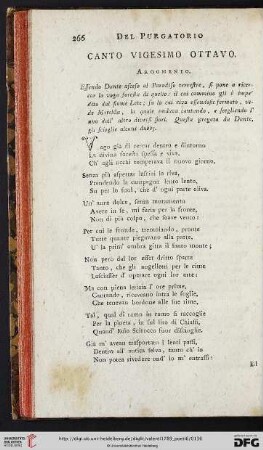 266 DEL PURGATORIO
CANTO VIGESIMO OTTAVO.
ARGOMENTO.
Essendo Dante asceso al Paradiso terrestre, si pone a
la vaga foresta di quello: il cui cammino gli è
dal fiume Lete; su la cui riva essendosi fermato,
cantando, e scegliendo
dall' altro diversi fiori. Questa pregata da Dante,
gli scioglie alcuni dubbj.
Vago già di cercar dentro e dintorno
La divina foresta spessa e viva,
Ch' agli occhi temperava il nuovo giorno,
Senza più aspettar lasciai la riva,
Prendendo la campagna lento lento,
Su per lo suol, che d' ogni parte oliva.
Un' aura dolce, senza mutamento
Avere in se, mi feria per la fronte,
Non di più colpo, che soave vento:
Per cui le fronde, tremolando, pronte
Tutte quante piegavano alla parte,
U' la prim' ombra gitta il santo monte;
Non però dal lor esser dritto sparte
Tanto, che gli augelletti per le cime
Lasciasser d' operare ogni lor arte:
Ma con piena letizia l' ore prime,
Cantando, ricevieno intra le foglie,
Che tenevan bordone alle sue rime,
Tal, qual di ramo in ramo si raccoglie
Per la pineta, in sul lito di Chiassi,
Quand' Eolo Scirocco fuor discioglie.
Già m' avean trasportato i lenti passi,
Dentro all' antica selva, tanto ch' io
Non potea rivedere ond' io m' entrassi:
Ed
UNIVERSITÄTS-
BIBLIOTHEK
HEIDELBERG
© Universitätsbibliothek Heidelberg
gefördert durch die
DFG